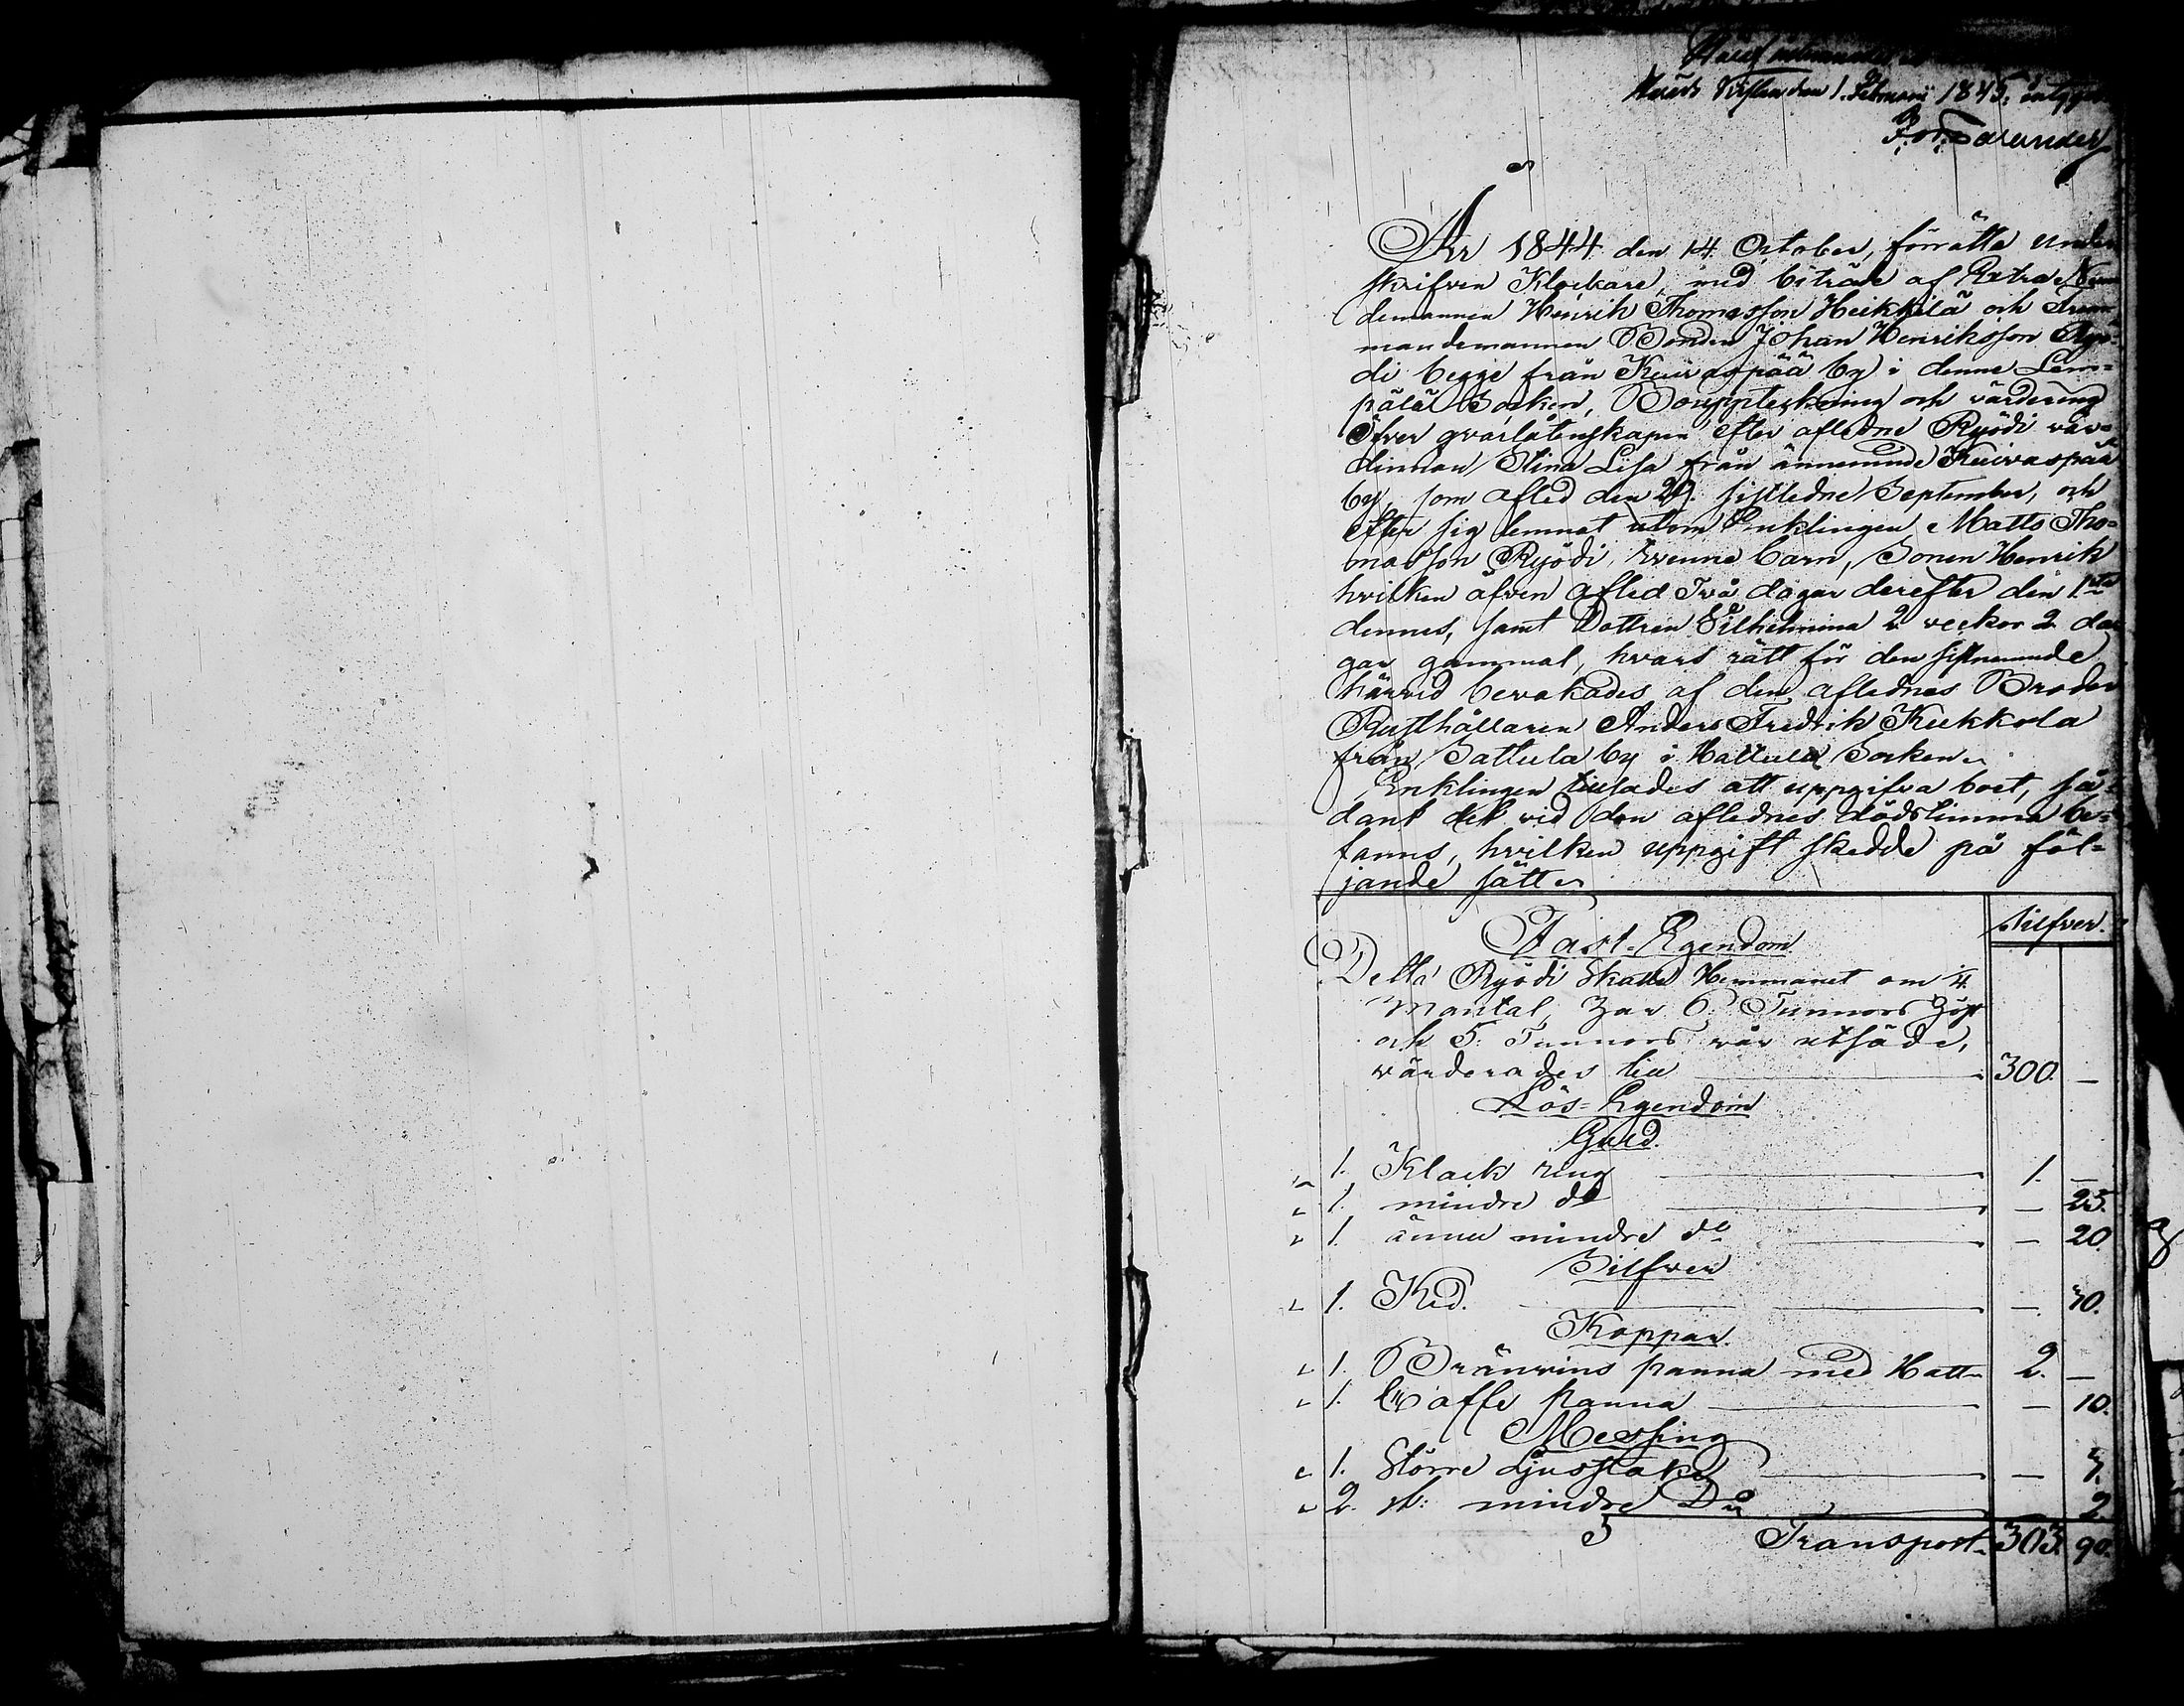 den 1. Februari 1845.
År 1844 den 14 October, förrätta under
skrifven Klockare, med biträde af Extra Nem
demannen Henrik Thomasson Heikkilä och
mandemannen Bonden Johan Henriksson Ryö-
di begge från Kuivaspää by i denne Lem-
pälä Socken, Bouppteckning och värdering
Öfver qvarlåtenskapen efter aflidne Ryödi vär-
dinnan Stina Lisa från ännemnde Kuivaspää
by, som afled den 29. sistledne September, och
efter sig lemnat utom Enklingen Matts Tho-
masson Ryödi, tvenne barn, Sonen Henrik
hvilken äfven afled Två dagar derefter den 1sta
dennes, samt Dottren Vilhelmina 2 veckor 2 da
gar gammal, hvars rätt för den sistnemnde
härvid bevakades af den aflednes Broder
Rusthållaren Anders Fredrik Kukkola
från Sattula by i Hattula Socken
Enklingen tillsades att uppgifva boet, så-
dant det vid den aflednes dödstimma be-
fanns, hvilken uppgift skedde på föl-
jande sätt
Silfver.
Fast-Egendom
Detta Ryödi Skatte Hemmanet om 1/4
Mantal, har 6: Tunnors höst
och 5: Tunnors vår utsäde,
värderades till — 300. —
Lös=Egendom
Guld.
1. Klack ring — 1. —
1. mindre do — — 25.
1. ännu mindre do — — 20.
Silfver
1. Ked. — — 30.
Koppar.
1. Bränvins panna med Hatt 2. —
1. Caffe panna — — 10.
Messing
1. Större Ljusstake — — 3.
2. st: mindre Do — 2.
Transport 303. 90.